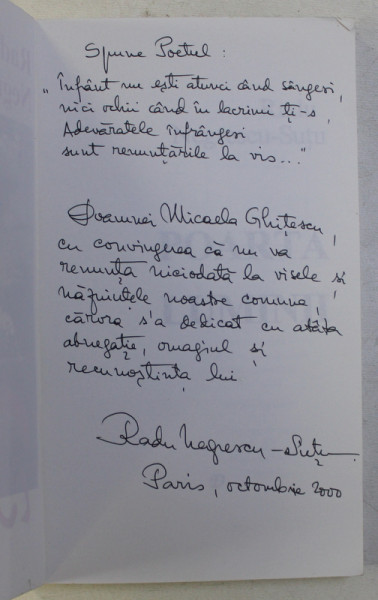 Spune Poetul :
"Înfânt nu ești atunci când sângeri,
nici ochii când în lacrimi ți-s,
Adevăratele înfrângeri
sunt renunțările la vis..."
Doamnei Micaela Ghițescu,
cu convingerea că nu va
renunța niciodată la visele și
năzuințele noastre comune,
cărora s'a dedicat cu atâta
abnegație, omagiul și
recunoștința lui
Radu Negrescu-Suțu
Paris, octombrie 2000